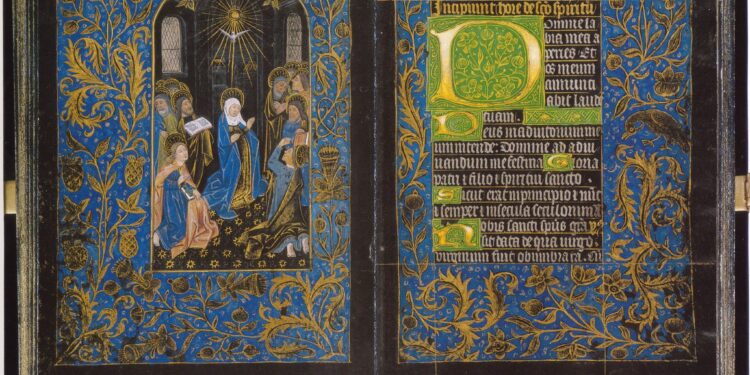 Incipiunt hore de sco spiritu
Domine la
bia mea a
peries Et
os meum
annunti
abit laud
tuam.
Deus in adiutorium me
um intende: Domine ad adiu
uandum me festina Glori a
patri ⁊ filio ⁊ spiritui sancto.
Sicut erat in principio ⁊ nuc
⁊ semper ⁊ in secula seculorum a
Nobis sancti spus gra
sit data de qua uirgo
uirginum fuit obumbrata.